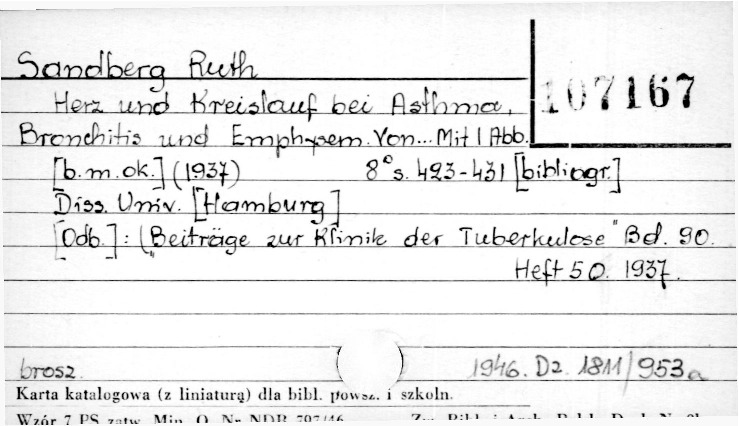 Sandberg Ruth
107167
Herz und Kreislauf bei Asthma,
Bronchitis und Emphysem. Von... Mit 1 Abb.
[b.m.ok.] (1937) 8° s. 423-431 [bibliogr.]
Diss. Univ. [Hamburg]
[Odb.]: („Beiträge zur Klinik der Tuberkulose" Bd. 90.
Heft 5 0. 1937.
brosz. 1946. Dz. 1811/953a
Karta katalogowa (z liniaturą) dla bibl. powsz. i szkoln.
Wzór 7 PS zatw. Min. O. Nr NDB